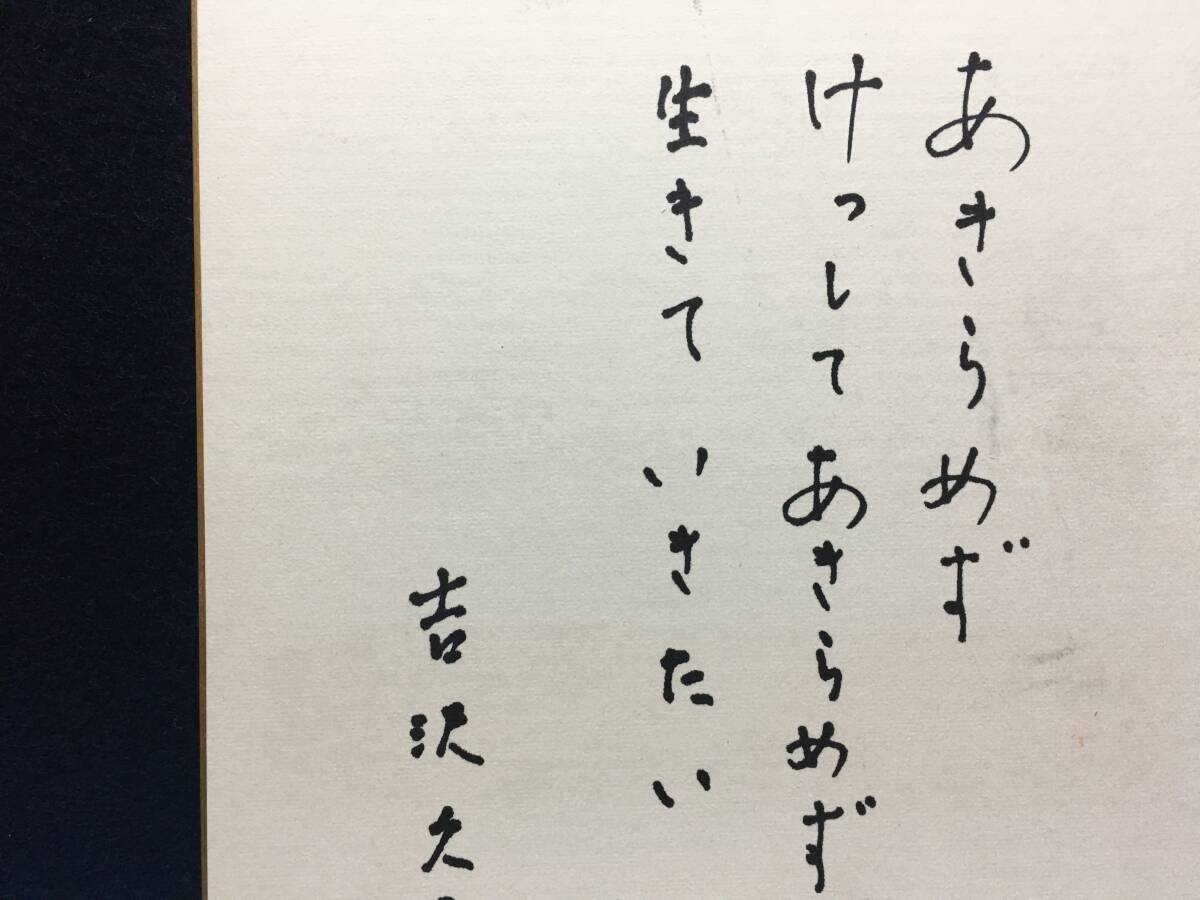 あきらめず
けっしてあきらめず
生きていきたい
吉沢久